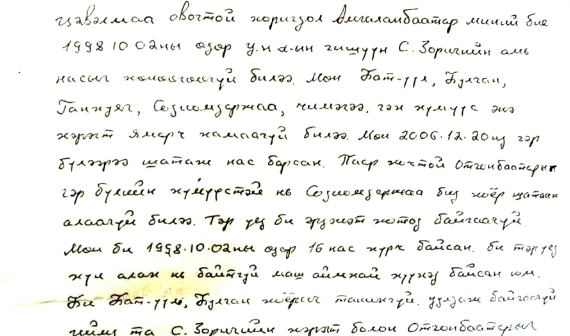 Цэвэлмаа овогтой хоригдол Амгаланбаатар миний бие
1998 10 02ны өдөр У.И.Х-ын гишүүн С. Зоригийн амь
насыг хөнөөгөөгүй билээ. Мөн Бат-Үүл, Булган,
Ганхуяг, Содномдаржаа, Чимгээ, гэх хүмүүс энэ
хэрэгт ямарч хамаагүй билээ. Мөн 2006.12.20нд гэр
бүлээрээ шатаж нас барсан. хочтой Отгонбаатарын
гэр бүлийн хүмүүстэй нь Содномдаржаа бид хоёр шатааж
алаагүй билээ. Тэр үед би эрдэнэт хотод байгаагүй.
Мөн би 1998.10.02ны өдөр 16 нас хүрч байсан. би тэр үед
хүн алах нь байтугай маш аймхай хүүхэд байсан юм.
Би Бат-Үүл, Булган хоёрыг танихгүй. уулзаж байгаагүй
та С. Зоригийн хэрэгт болон Отгонбаатарын